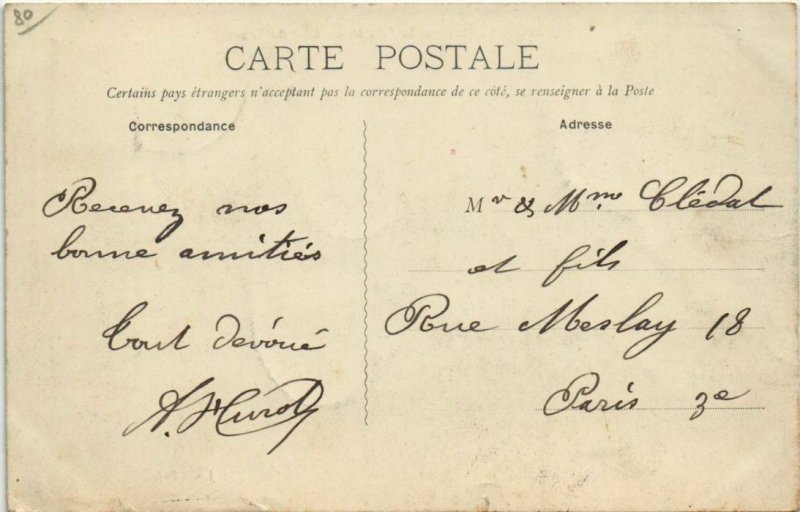 80
CARTE POSTALE
Certains pays étrangers n'acceptant pas la correspondance de ce côté, se renseigner à la Poste
Correspondance
Recevez nos
bonne amitiés
Tout dévoué
Adresse
Mr & Mme Clédat
et fils
Rue Meslay 18
Paris 3e